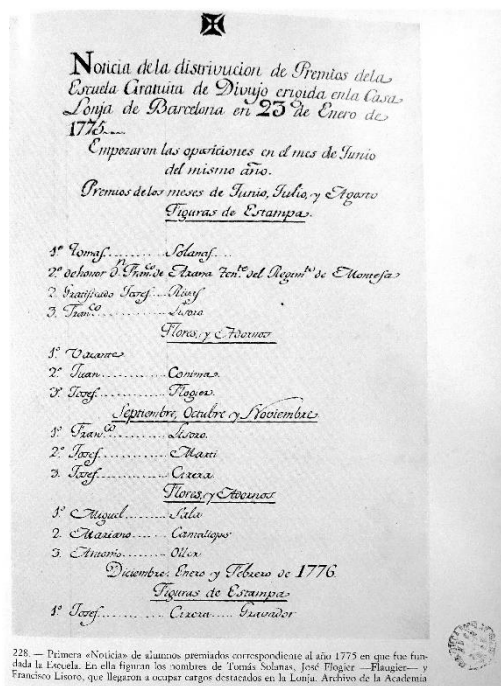 Noticia de la distrivucion de Premios de la
Escuela Gratuita de Divujo erigida en la Casa
Lonja de Barcelona en 23 de Enero de
1775
Empezaron las oposiciones en el mes de Junio
del mismo año.
Premios de los meses de Junio, Julio, y Agosto
Figuras de Estampa.
1º Tomas......... Solanas...
2º de honor dn. Franco. de Arana Tente. del Regimto. de Montesa
2. Gratificado Josef... Rius
3. Franco......... Lisoro
Flores, y Adornos
1º Vacante
2º Juan......... Conima
3º Josef......... Flogier
Septiembre, Octubre y Noviembre
1º Franco......... Lisoro.
2º Josef......... Marti
3. Josef......... Cirera
Flores, y Adornos
1º Miguel......... Sala
2. Mariano.........
3. Antonio......... Oller
Diciembre, Enero y Febrero de 1776.
Figuras de Estampa
1º Josef......... Cirera...... Gravador
228. — Primera «Noticia» de alumnos premiados correspondiente al año 1775 en que fue fun-
dada la Escuela. En ella figuran los nombres de Tomás Solanas, José Flogier —Flaugier— y
Francisco Lisoro, que llegaron a ocupar cargos destacados en la Lonja. Archivo de la Academia